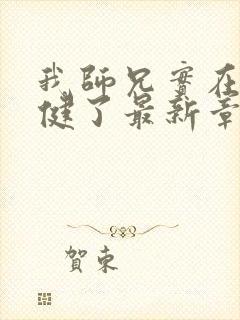 我師兄實在
健了最新章
賀東